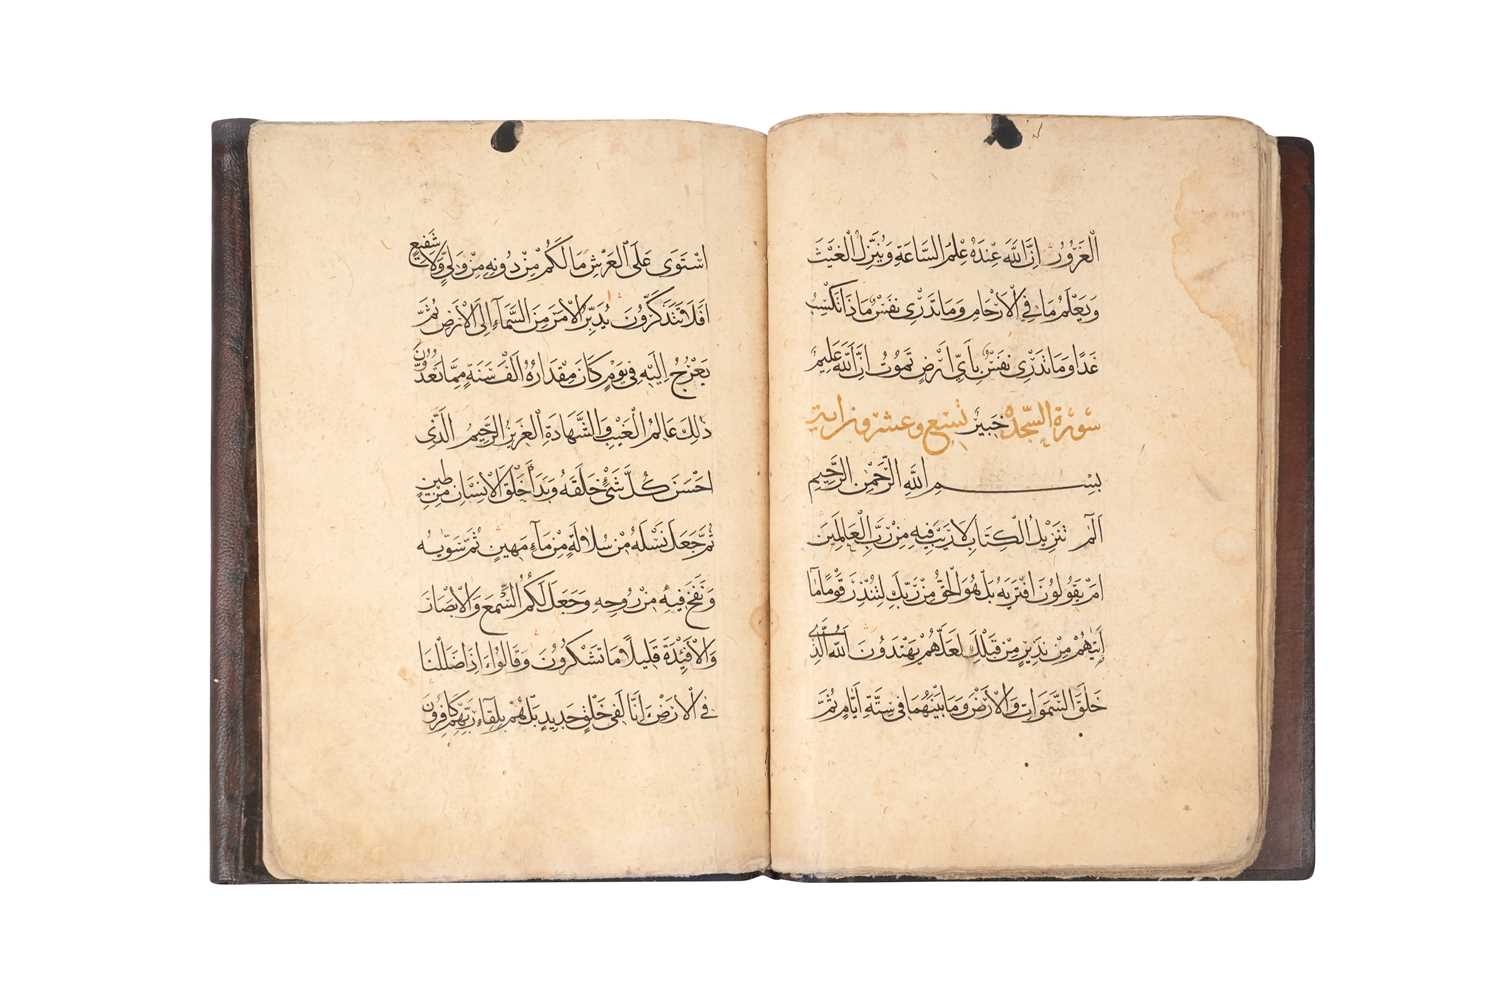 الْغَرُورُ اِنَّ اللّٰهَ عِنْدَهُ عِلْمُ السَّاعَةِ وَيُنَزِّلُ الْغَيْثَ
وَيَعْلَمُ مَا فِي الْاَرْحَامِ وَمَا تَدْرِي نَفْسٌ مَاذَا تَكْسِبُ
غَدًا وَمَا تَدْرِي نَفْسٌ بِاَيِّ اَرْضٍ تَمُوتُ اِنَّ اللّٰهَ عَلِيمٌ
سورة السّجده خَبِيرٌ تسع وعشرون اية
بِسْمِ اللّٰهِ الرَّحْمٰنِ الرَّحِيمِ
الٓمٓ تَنْزِيلُ الْكِتَابِ لَا رَيْبَ فِيهِ مِنْ رَبِّ الْعَالَمِينَ
اَمْ يَقُولُونَ افْتَرٰيهُ بَلْ هُوَ الْحَقُّ مِنْ رَبِّكَ لِتُنْذِرَ قَوْمًا مَا
اَتٰيهُمْ مِنْ نَذِيرٍ مِنْ قَبْلِكَ لَعَلَّهُمْ يَهْتَدُونَ اَللّٰهُ الَّذِي
خَلَقَ السَّمٰوَاتِ وَالْاَرْضَ وَمَا بَيْنَهُمَا فِي سِتَّةِ اَيَّامٍ ثُمَّ
اسْتَوٰى عَلَى الْعَرْشِ مَا لَكُمْ مِنْ دُونِهِ مِنْ وَلِيٍّ وَلَا شَفِيعٍ
اَفَلَا تَتَذَكَّرُونَ يُدَبِّرُ الْاَمْرَ مِنَ السَّمَآءِ اِلَى الْاَرْضِ ثُمَّ
يَعْرُجُ اِلَيْهِ فِي يَوْمٍ كَانَ مِقْدَارُهُ اَلْفَ سَنَةٍ مِمَّا تَعُدُّونَ
ذٰلِكَ عَالِمُ الْغَيْبِ وَالشَّهَادَةِ الْعَزِيزُ الرَّحِيمُ الَّذِي
اَحْسَنَ كُلَّ شَيْءٍ خَلَقَهُ وَبَدَاَ خَلْقَ الْاِنْسَانِ مِنْ طِينٍ
ثُمَّ جَعَلَ نَسْلَهُ مِنْ سُلَالَةٍ مِنْ مَآءٍ مَهِينٍ ثُمَّ سَوّٰيهُ
وَنَفَخَ فِيهِ مِنْ رُوحِهِ وَجَعَلَ لَكُمُ السَّمْعَ وَالْاَبْصَارَ
وَالْاَفْئِدَةَ قَلِيلًا مَا تَشْكُرُونَ وَقَالُوا ءَاِذَا ضَلَلْنَا
فِي الْاَرْضِ ءَاِنَّا لَفِي خَلْقٍ جَدِيدٍ بَلْ هُمْ بِلِقَاءِ رَبِّهِمْ كَافِرُونَ